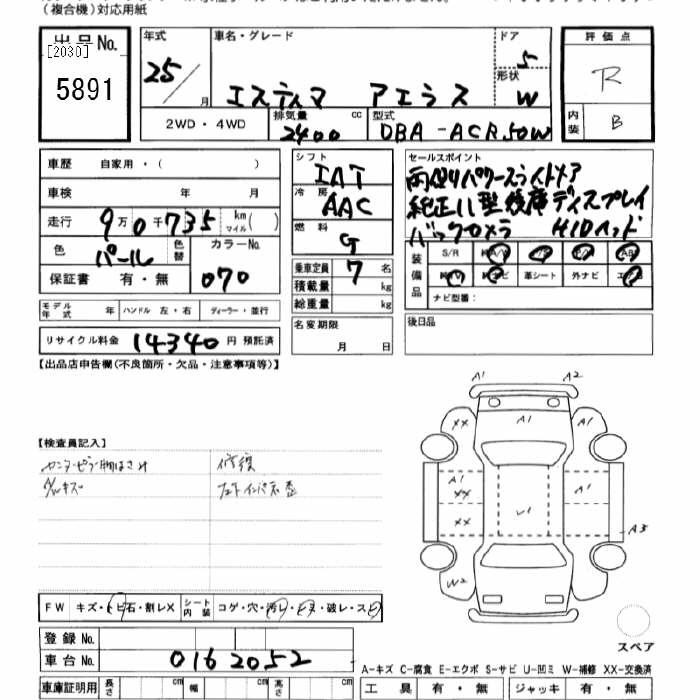 （複合機）対応用紙
出品No.
[2030]
5891
年式
25/
月
車名・グレード
エスティマ アエラス
ドア
5
形状
W
評価点
R
内装
B
2WD・4WD
排気量
2400
cc
型式
DBA-ACR50W
車歴
自家用・（ ）
車検
年 月
走行
9万0千735
km
マイル
( )
色
パール
色替
カラーNo.
070
保証書
有・無
シフト
IAT
冷房
AAC
燃料
G
乗車定員
7
名
積載量
kg
総重量
kg
セールスポイント
両側パワースライドドア
純正11型後席ディスプレイ
バックカメラ HIDヘッド
装備品
S/R
A/W
P/S
P/W
AB
TV
ナビ
革シート
外ナビ
エアロ
ナビ型番：
モデル年式
年
ハンドル 左・右
ディーラー・並行
リサイクル料金
14340
円 預託済
名変期限
月 日
後日品
【出品店申告欄(不良箇所・欠品・注意事項等)】
【検査員記入】
修復
A/Wキズ
A1 A2
XX A1 A1
A1
XX
XX
A1
A3
W2
FW
キズ・ヒビ・石・割レX
シート内装
コゲ・穴・汚レ・キズ・破レ・スレ
登録No.
車台No.
0162052
スペア
車庫証明用
長さ
cm
幅
cm
高さ
cm
A-キズ C-腐食 E-エクボ S-サビ U-凹ミ W-補修 XX-交換済
工具
有・無
ジャッキ
有・無